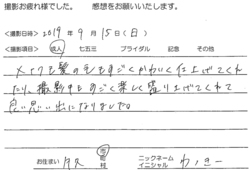 撮影お疲れ様でした。　感想をお願いいたします。
<撮影日時> 2019年 9月 15日（日）
<撮影項目> 成人　七五三　ブライダル　記念　その他
メイクも髪の毛もすごくかわいく仕上げてくれ
たり、撮影中もすごく楽しく盛り上げてくれて
良い思い出になりました。
お住まい　市 町 村
ニックネーム イニシャル